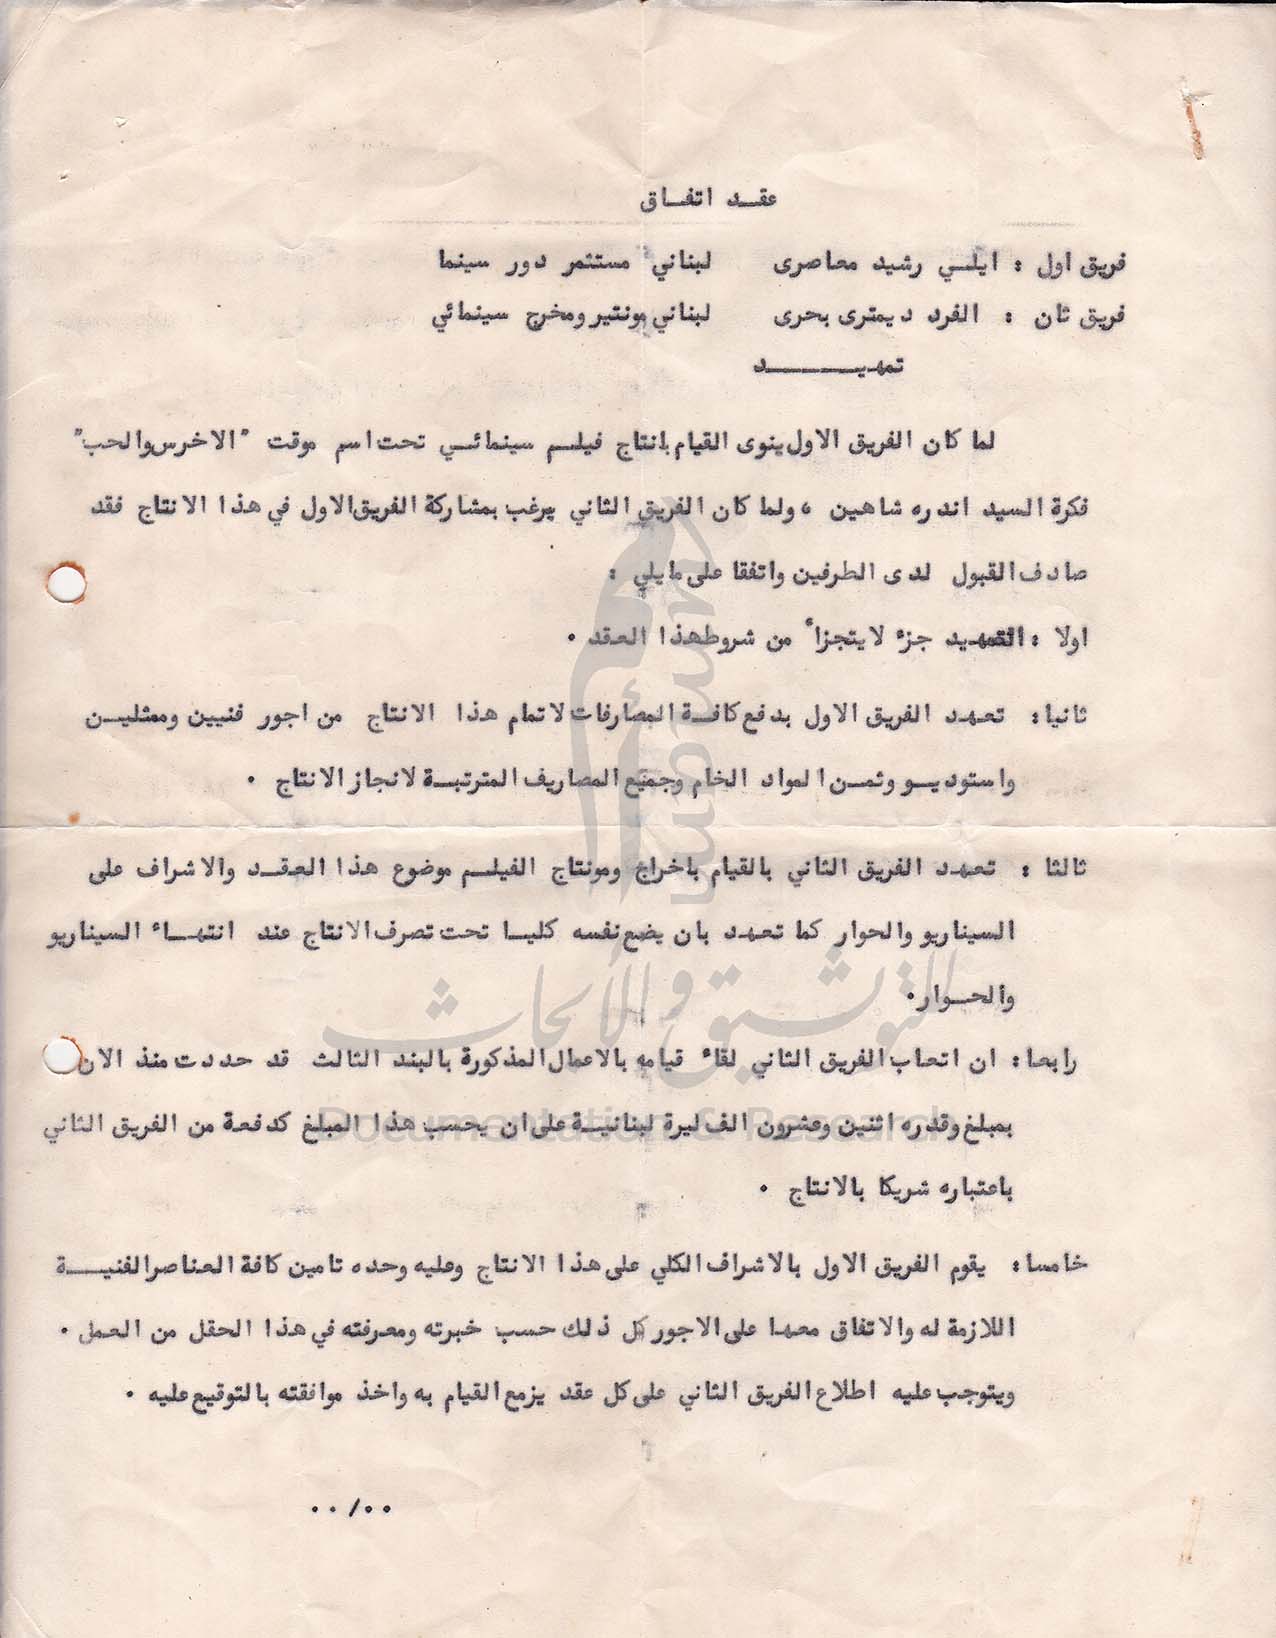 عقد اتفاق
فريق اول : ايلي رشيد معاصرى لبناني مستثمر دور سينما
فريق ثان : الفرد ديمترى بحرى لبناني مونتير ومخرج سينمائي
تمهيد
لما كان الفريق الاول ينوى القيام بانتاج فيلم سينمائي تحت اسم موقت "الاخرس والحب"
فكرة السيد اندره شاهين ، ولما كان الفريق الثاني يرغب بمشاركة الفريق الاول في هذا الانتاج فقد
صادف القبول لدى الطرفين واتفقا على مايلي :
اولا : التمهيد جزء لا يتجزأ من شروط هذا العقد .
ثانيا : تعهد الفريق الاول بدفع كافة المصارفات لاتمام هذا الانتاج من اجور فنيين وممثلين
واستوديو وثمن المواد الخام وجميع المصاريف المترتبة لانجاز الانتاج .
ثالثا : تعهد الفريق الثاني بالقيام باخراج ومونتاج الفيلم موضوع هذا العقد والاشراف على
السيناريو والحوار كما تعهد بان يضع نفسه كليا تحت تصرف الانتاج عند انتهاء السيناريو
والحوار.
رابعا : ان اتعاب الفريق الثاني لقاء قيامه بالاعمال المذكورة بالبند الثالث قد حددت منذ الان
بمبلغ وقدره اثنين وعشرون الف ليرة لبنانية على ان يحسب هذا المبلغ كدفعة من الفريق الثاني
باعتباره شريكا بالانتاج .
خامسا : يقوم الفريق الاول بالاشراف الكلي على هذا الانتاج وعليه وحده تامين كافة العناصر الفنية
اللازمة له والاتفاق معها على الاجور كل ذلك حسب خبرته ومعرفته في هذا الحقل من العمل .
ويتوجب عليه اطلاع الفريق الثاني على كل عقد يزمع القيام به واخذ موافقته بالتوقيع عليه .
../..
أمم umam
التوثيق والأبحاث
Documentation & Research